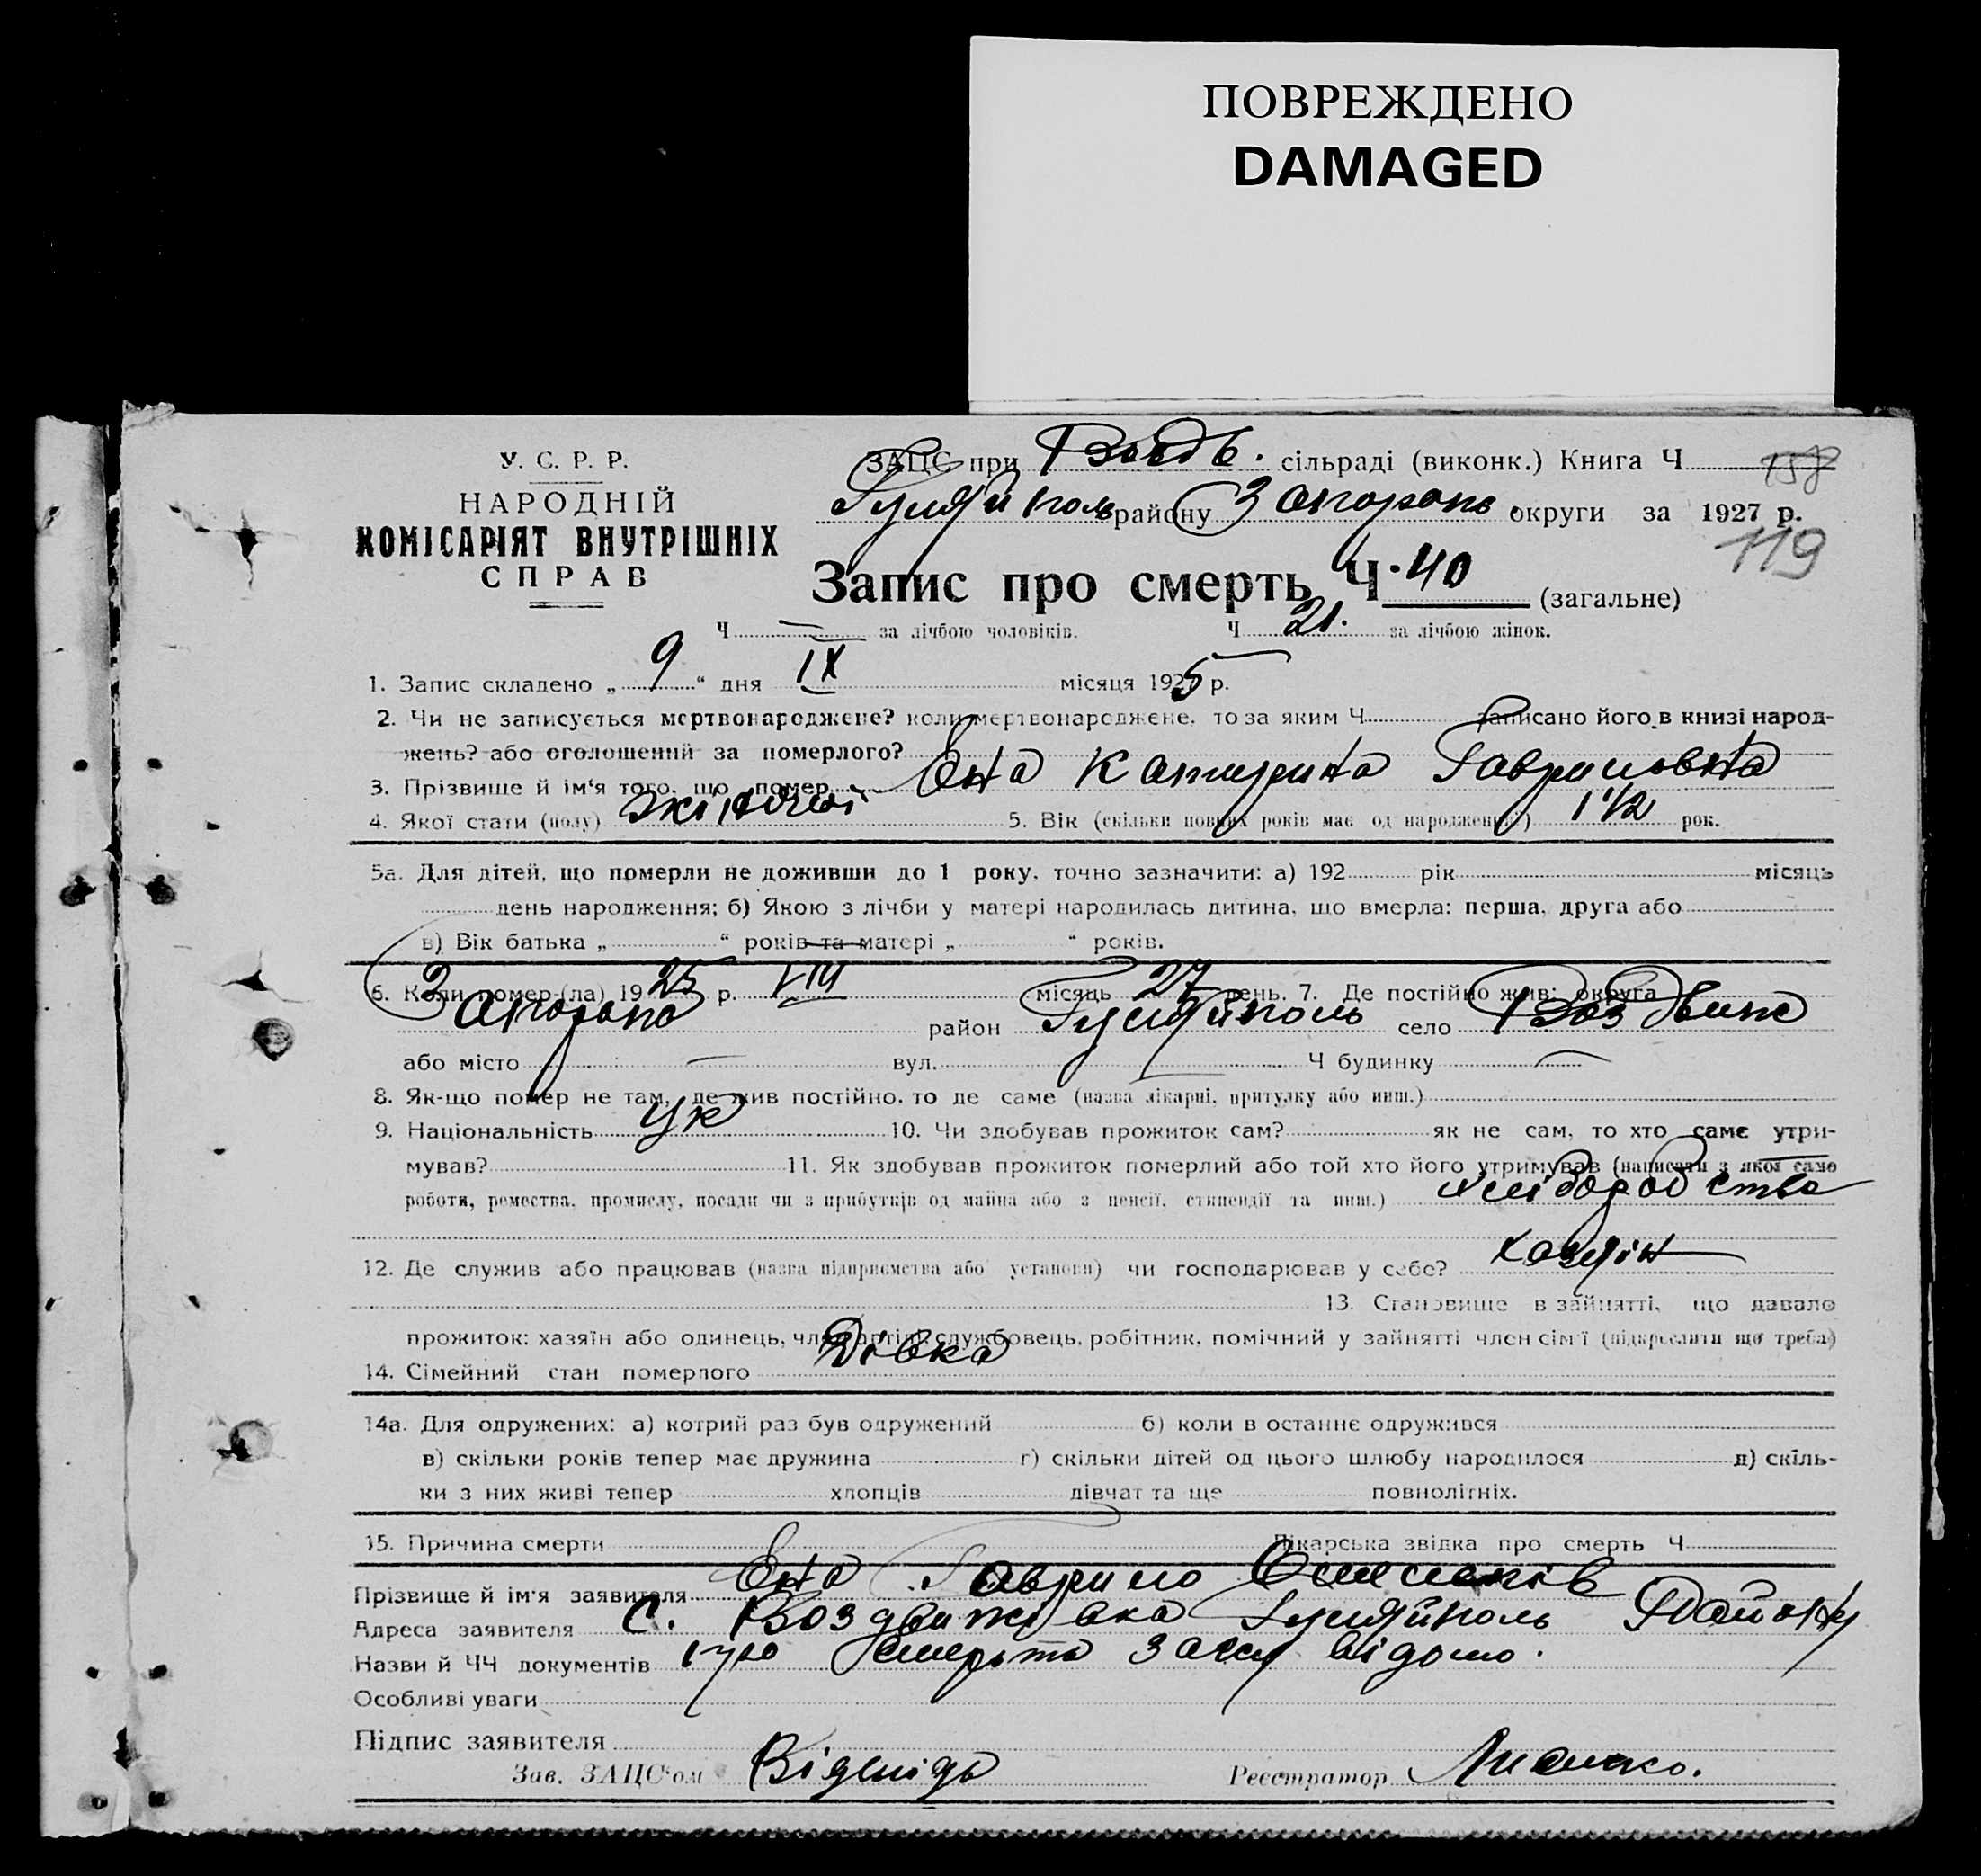 ПОВРЕЖДЕНО
DAMAGED
У. С. Р. Р.
НАРОДНІЙ
КОМІСАРІЯТ ВНУТРІШНІХ
СПРАВ
ЗАЦС при сільраді (виконк.) Книга Ч 158
Гуляйполь району Запорізь округи за 1927 р.
119
Запис про смерть Ч. 40 (загальне)
Ч — за лічбою чоловіків. Ч 21. за лічбою жінок.
1. Запис складено „ 9 “ дня IX місяця 1925 р.
2. Чи не записується мертвонароджене? коли мертвонароджене, то за яким Ч записано його в книзі народ-
жень? або оголошений за померлого?
3. Прізвище й ім'я того, що помер Єна Катерина Гавриловна
4. Якої стати (полу) жіночої 5. Вік (скільки повних років має од народження) 1 1/2 рок.
5а. Для дітей, що померли не доживши до 1 року, точно зазначити: а) 192 рік місяць
день народження; б) Якою з лічби у матері народилась дитина, що вмерла: перша, друга або
в) Вік батька „ “ років та матері „ “ років.
6. Коли помер-(ла) 1925 р. VIII місяць 27 день. 7. Де постійно жив: округа
район Гуляйполь село Воздвиж
або місто — вул. — Ч будинку —
8. Як-що помер не там, де жив постійно, то де саме (назва лікарні, притулку або инш.)
9. Національність Ук 10. Чи здобував прожиток сам? як не сам, то хто саме утри-
мував? 11. Як здобував прожиток померлий або той хто його утримував (написати з якої само
роботи, ремества, промислу, посади чи з прибутків од майна або з пенсії, стипендії та инш.) хліборобство
12. Де служив або працював (назва підприємства або установи) чи господарював у себе? хазяїн
13. Становище в зайнятті, що давало
прожиток: хазяїн або одинець, член артілі, службовець, робітник, помічний у зайнятті член сім'ї (підкреслити що треба)
14. Сімейний стан померлого Дівка
14а. Для одружених: а) котрий раз був одружений б) коли в останнє одружився
в) скільки років тепер має дружина г) скільки дітей од цього шлюбу народилося д) скіль-
ки з них живі тепер хлопців дівчат та ще повнолітніх.
15. Причина смерти Лікарська звідка про смерть Ч
Прізвище й ім'я заявителя Єна Гаврило
Адреса заявителя с. Воздвижівка Гуляйполь Району
Назви й ЧЧ документів про смерть відомо.
Особливі уваги
Підпис заявителя
Зав. ЗАЦС'ом Реєстратор